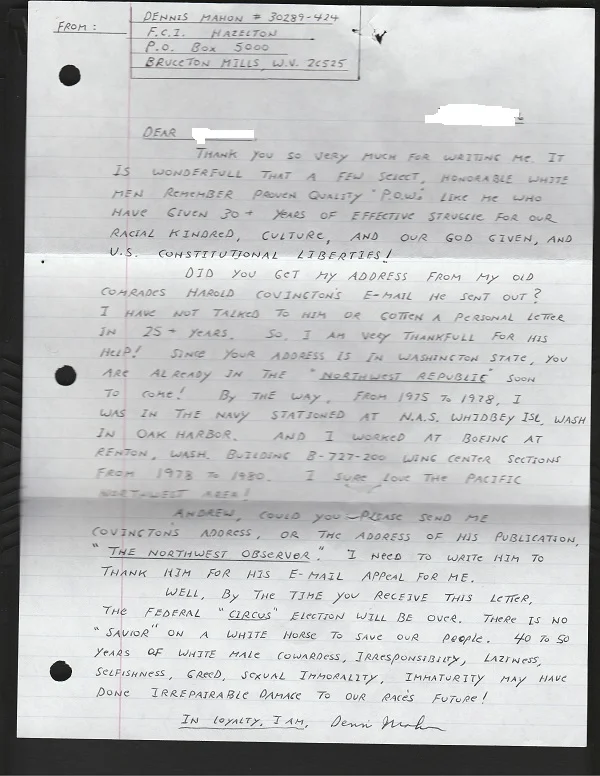 FROM:
DENNIS MAHON # 30289-424
F.C.I. HAZELTON
P.O. BOX 5000
BRUCETON MILLS, W.V. 26525
DEAR
THANK YOU SO VERY MUCH FOR WRITING ME. IT
IS WONDERFULL THAT A FEW SELECT, HONORABLE WHITE
MEN REMEMBER PROVEN QUALITY "P.O.W.s" LIKE ME WHO
HAVE GIVEN 30+ YEARS OF EFFECTIVE STRUGGLE FOR OUR
RACIAL KINDRED, CULTURE, AND OUR GOD GIVEN, AND
U.S. CONSTITUTIONAL LIBERTIES!
DID YOU GET MY ADDRESS FROM MY OLD
COMRADES HAROLD COVINGTON'S E-MAIL HE SENT OUT?
I HAVE NOT TALKED TO HIM OR GOTTEN A PERSONAL LETTER
IN 25+ YEARS. SO, I AM VERY THANKFULL FOR HIS
HELP! SINCE YOUR ADDRESS IS IN WASHINGTON STATE, YOU
ARE ALREADY IN THE "NORTHWEST REPUBLIC" SOON
TO COME! BY THE WAY, FROM 1975 TO 1978, I
WAS IN THE NAVY STATIONED AT N.A.S. WHIDBEY ISL, WASH
IN OAK HARBOR. AND I WORKED AT BOEING AT
RENTON, WASH. BUILDING B-727-200 WING CENTER SECTIONS
FROM 1978 TO 1980. I SURE LOVE THE PACIFIC
NORTHWEST AREA!
ANDREW, COULD YOU PLEASE SEND ME
COVINGTON'S ADDRESS, OR THE ADDRESS OF HIS PUBLICATION,
"THE NORTHWEST OBSERVER". I NEED TO WRITE HIM TO
THANK HIM FOR HIS E-MAIL APPEAL FOR ME.
WELL, BY THE TIME YOU RECEIVE THIS LETTER,
THE FEDERAL "CIRCUS" ELECTION WILL BE OVER. THERE IS NO
"SAVIOR" ON A WHITE HORSE TO SAVE OUR PEOPLE. 40 TO 50
YEARS OF WHITE MALE COWARDESS, IRRESPONSIBILTY, LAZINESS,
SELFISHNESS, GREED, SEXUAL IMMORALITY, IMMATURITY MAY HAVE
DONE IRREPAIRABLE DAMAGE TO OUR RACES FUTURE!
IN LOYALTY, I AM, Dennis Mahon